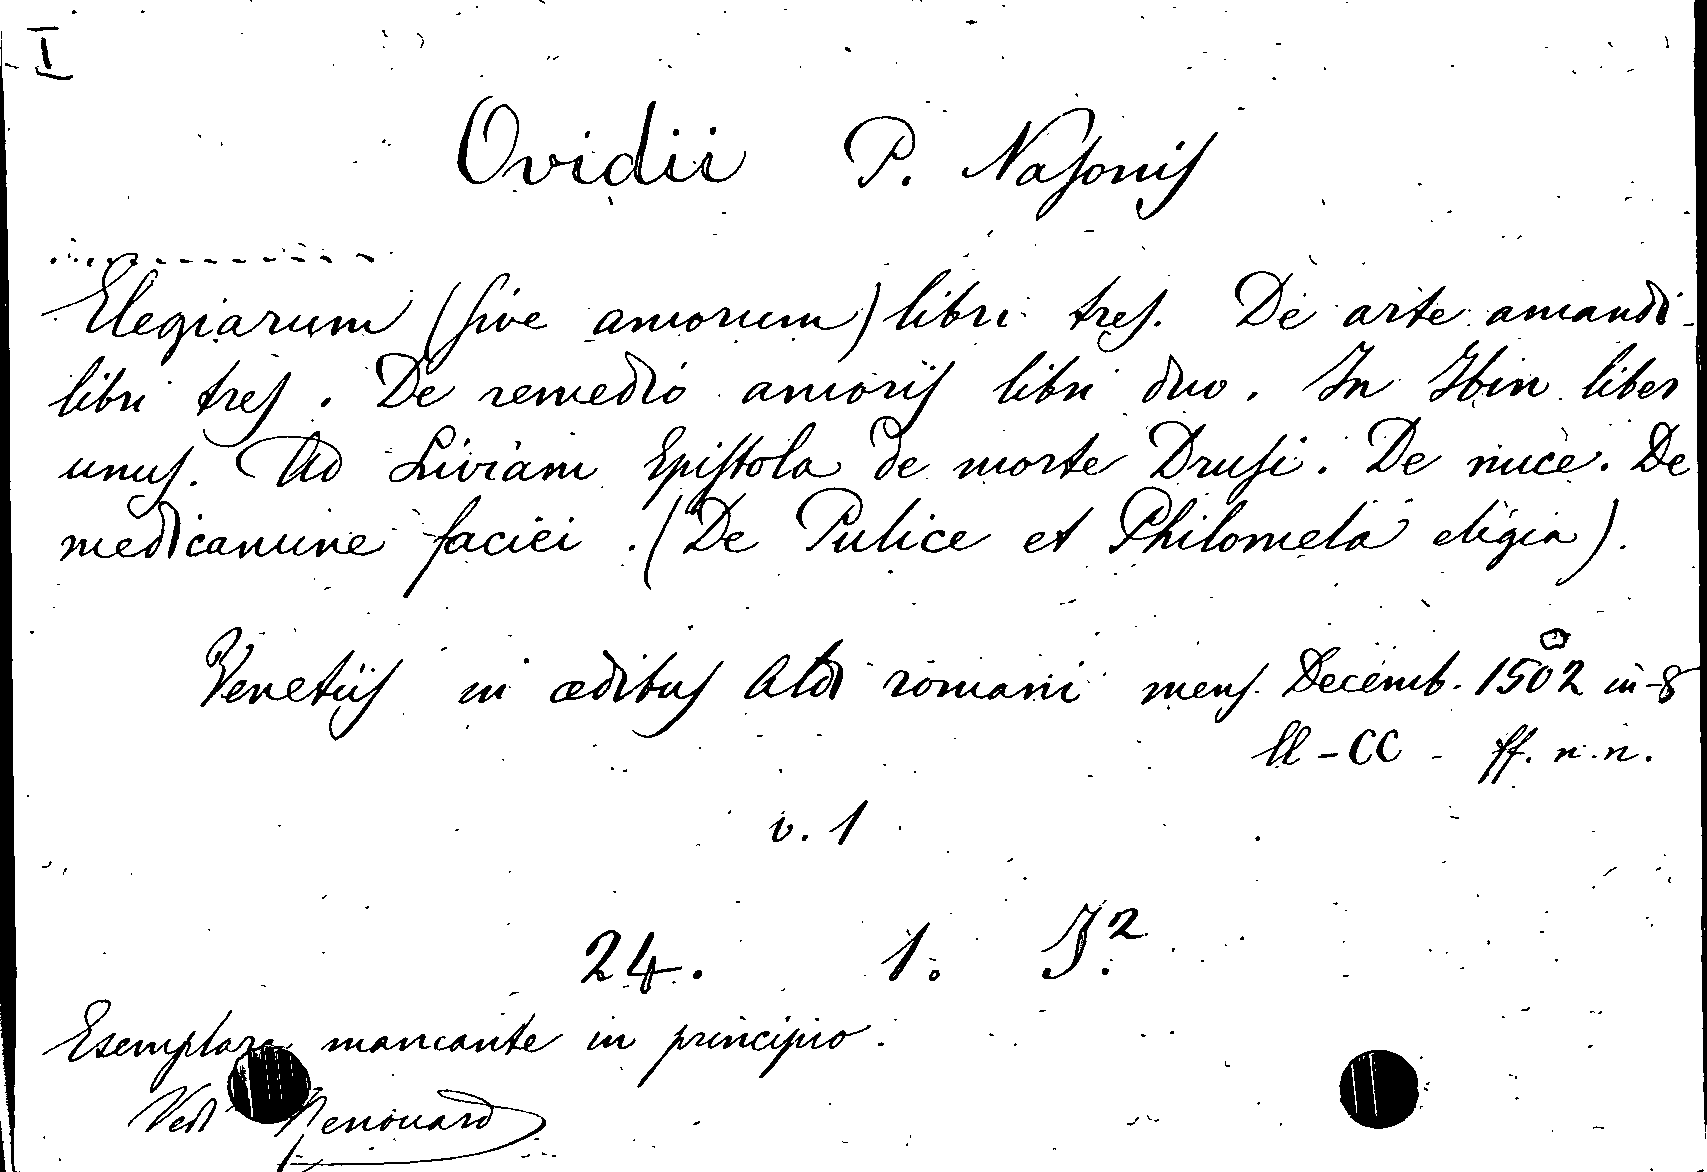 I
Ovidii P. Nasonis
Elegiarum (sive amorum) libri tres. De arte amandi
libri tres. De remedio amoris libri duo. In Ibin liber
unus. Ad Liviam Epistola de morte Drusi. De nuce. De
medicamine faciei. (De Pulice et Philomela eligia).
Venetiis in ædibus Aldi romani mens. Decemb. 1502 in-8
ll-CC - ff. n.n.
v. 1
24. 1. J.²
Esemplare mancante in principio.
Vedi Renouard